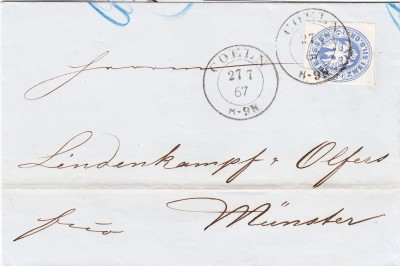 COELN
27 7
67
8-9N
COELN
27
8-9N
Herrn
Lindenkampf & Olfers
fco
Münster.